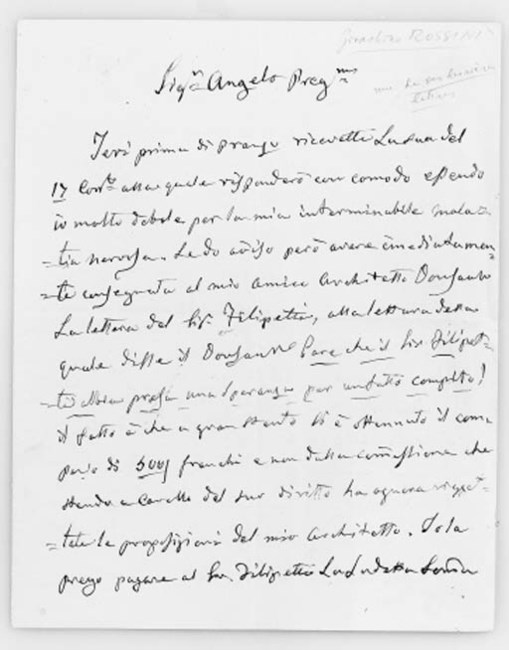 Gioachino ROSSINI
Sig.r Angelo Preg.mo
Ieri prima di pranzo ricevetti La sua del
17 Corr.te alla quale risponderò con comodo essendo
io molto debole per la mia interminabile mala=
=tia nervosa. Le do aviso però avere imediatamen=
=te consegnata al mio amico Architetto Doussault
La lettera del Sig.r Filipetti, alla lettura della
quale disse il Doussault Pare che il Sig.r Filipet=
=ti abbia preso una speranza per un fatto completo!
il fatto è che a gran stento si è ottenuto il com
penso di 500 franchi e non dalla comissione che
stando a cavallo del suo diritto ha ognora rigget=
=tate le proposizioni del mio Architetto. Io la
prego pagare al Sig. Filipetti La sudetta Somma